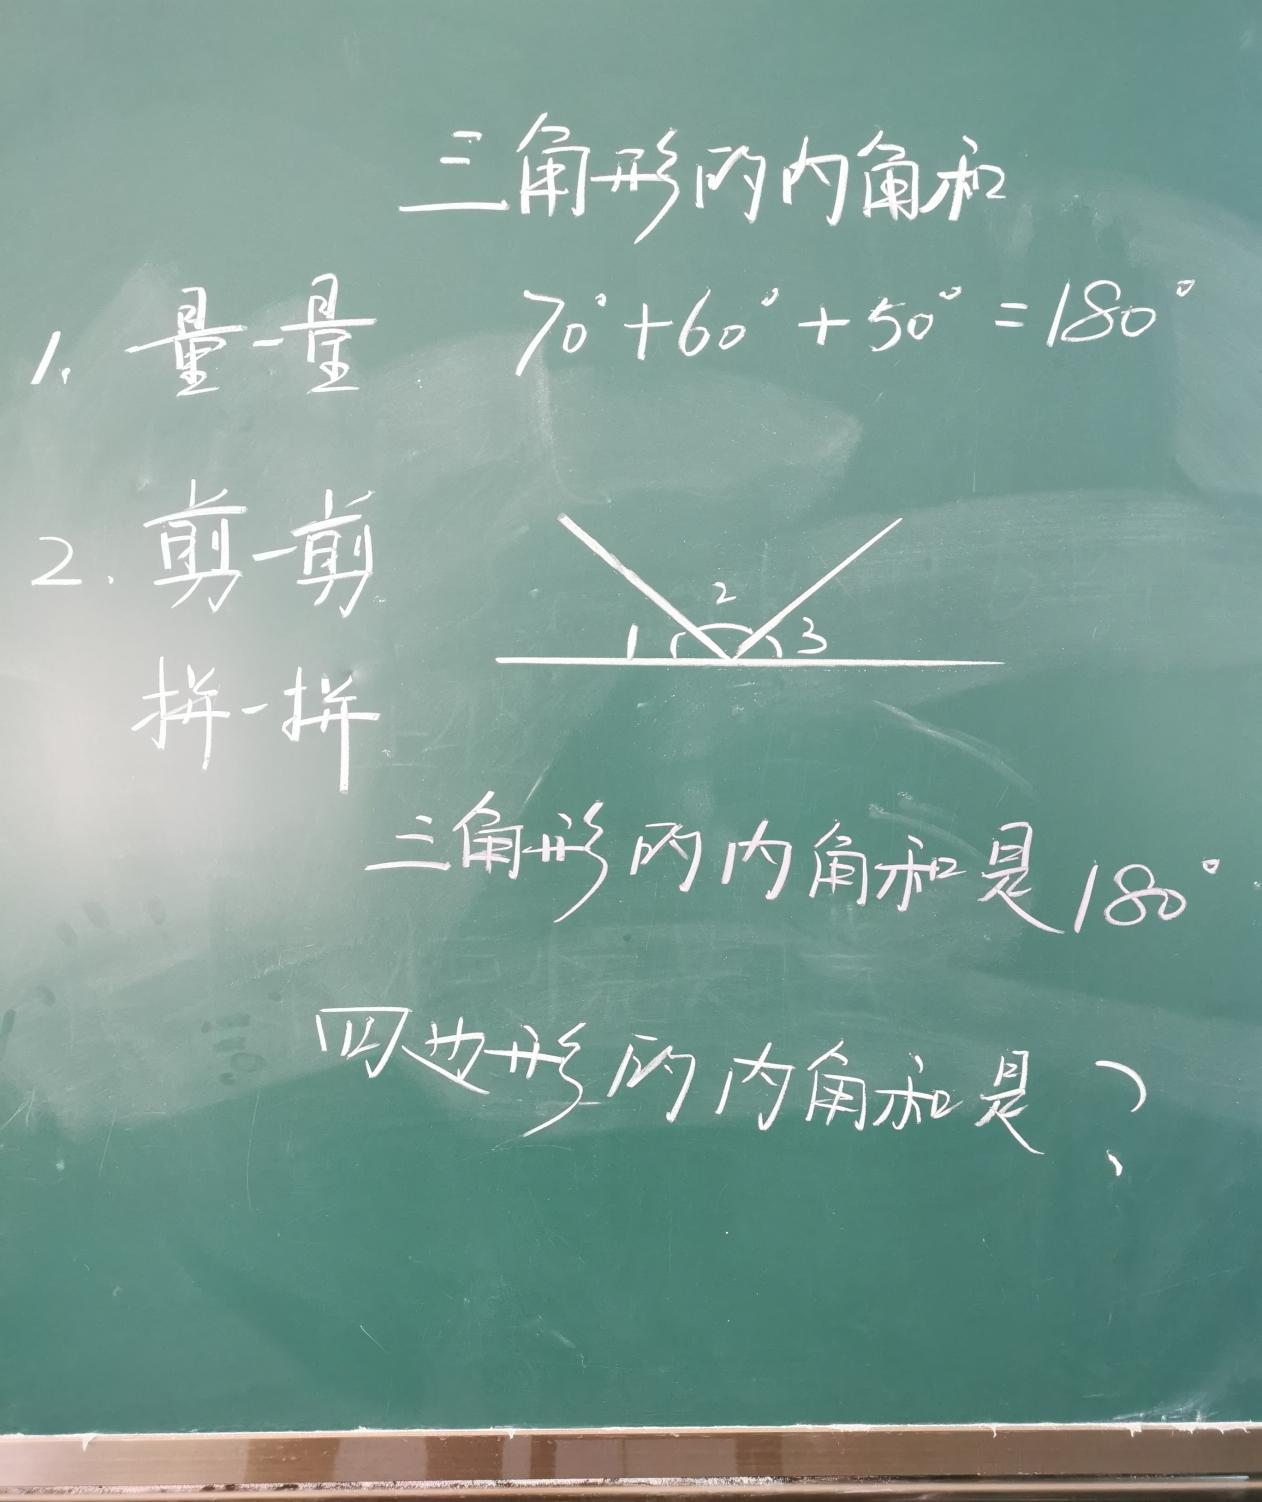 三角形的内角和
1. 量一量 70°+60°+50°=180°
2. 剪一剪
1 2 3
拼一拼
三角形的内角和是180°.
四边形的内角和是?